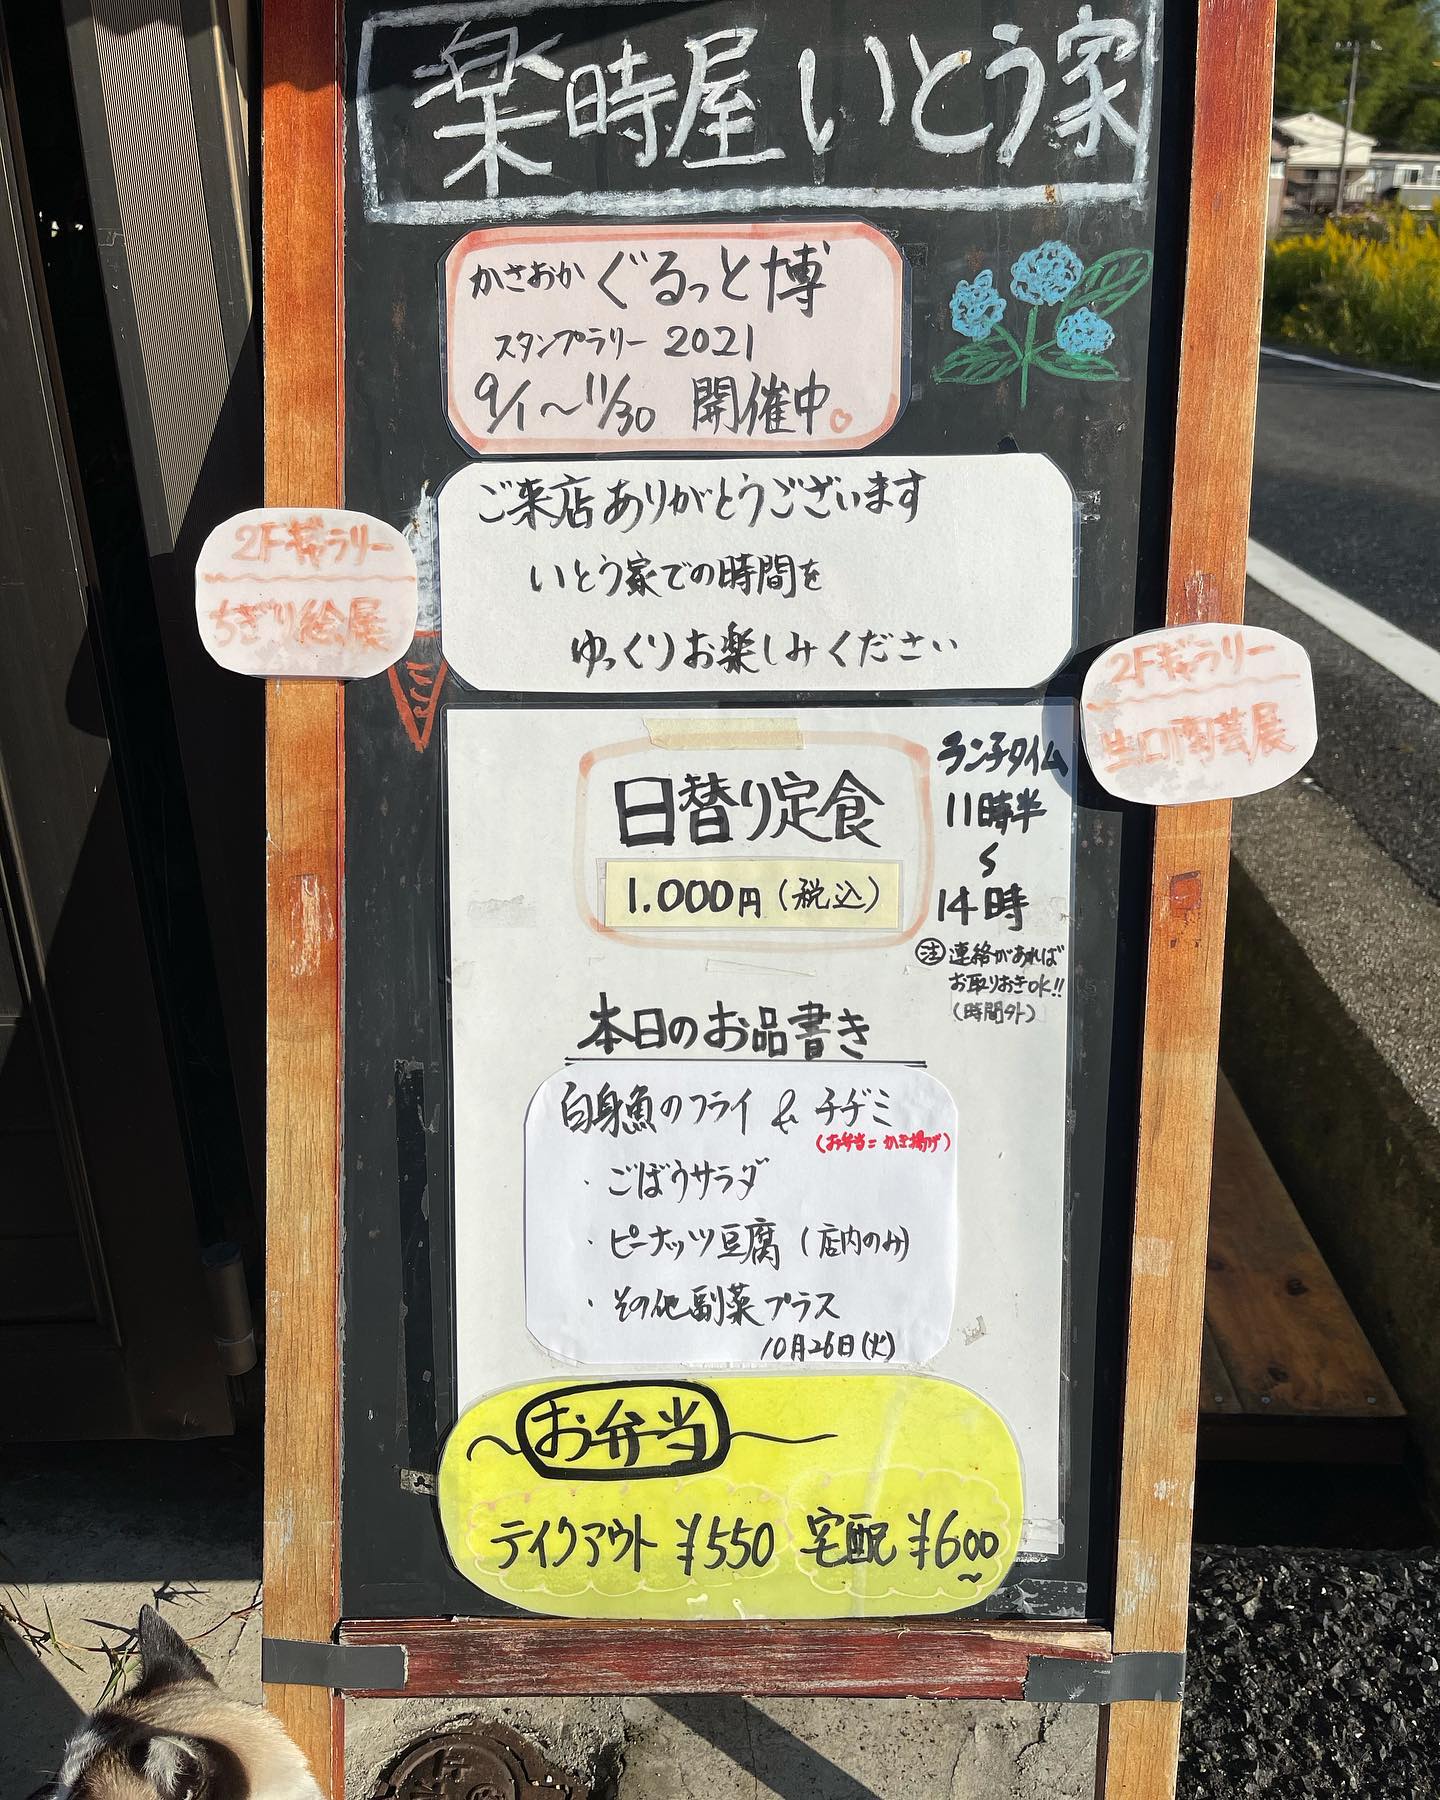 楽時屋 いとう家
かさおか ぐるっと博
スタンプラリー 2021
9/1～11/30 開催中
ご来店ありがとうございます
いとう家での時間を
ゆっくりお楽しみください
2Fギャラリー
ちぎり絵展
2Fギャラリー
陶芸展
日替り定食
1.000円(税込)
ランチタイム
11時半
〜
14時
注 連絡があれば
お取りおきOK!!
(時間外)
本日のお品書き
白身魚のフライ & チヂミ
(お弁当=かき揚げ)
・ごぼうサラダ
・ピーナッツ豆腐(店内のみ)
・その他副菜プラス
10月26日(火)
お弁当
テイクアウト ¥550 宅配 ¥600〜